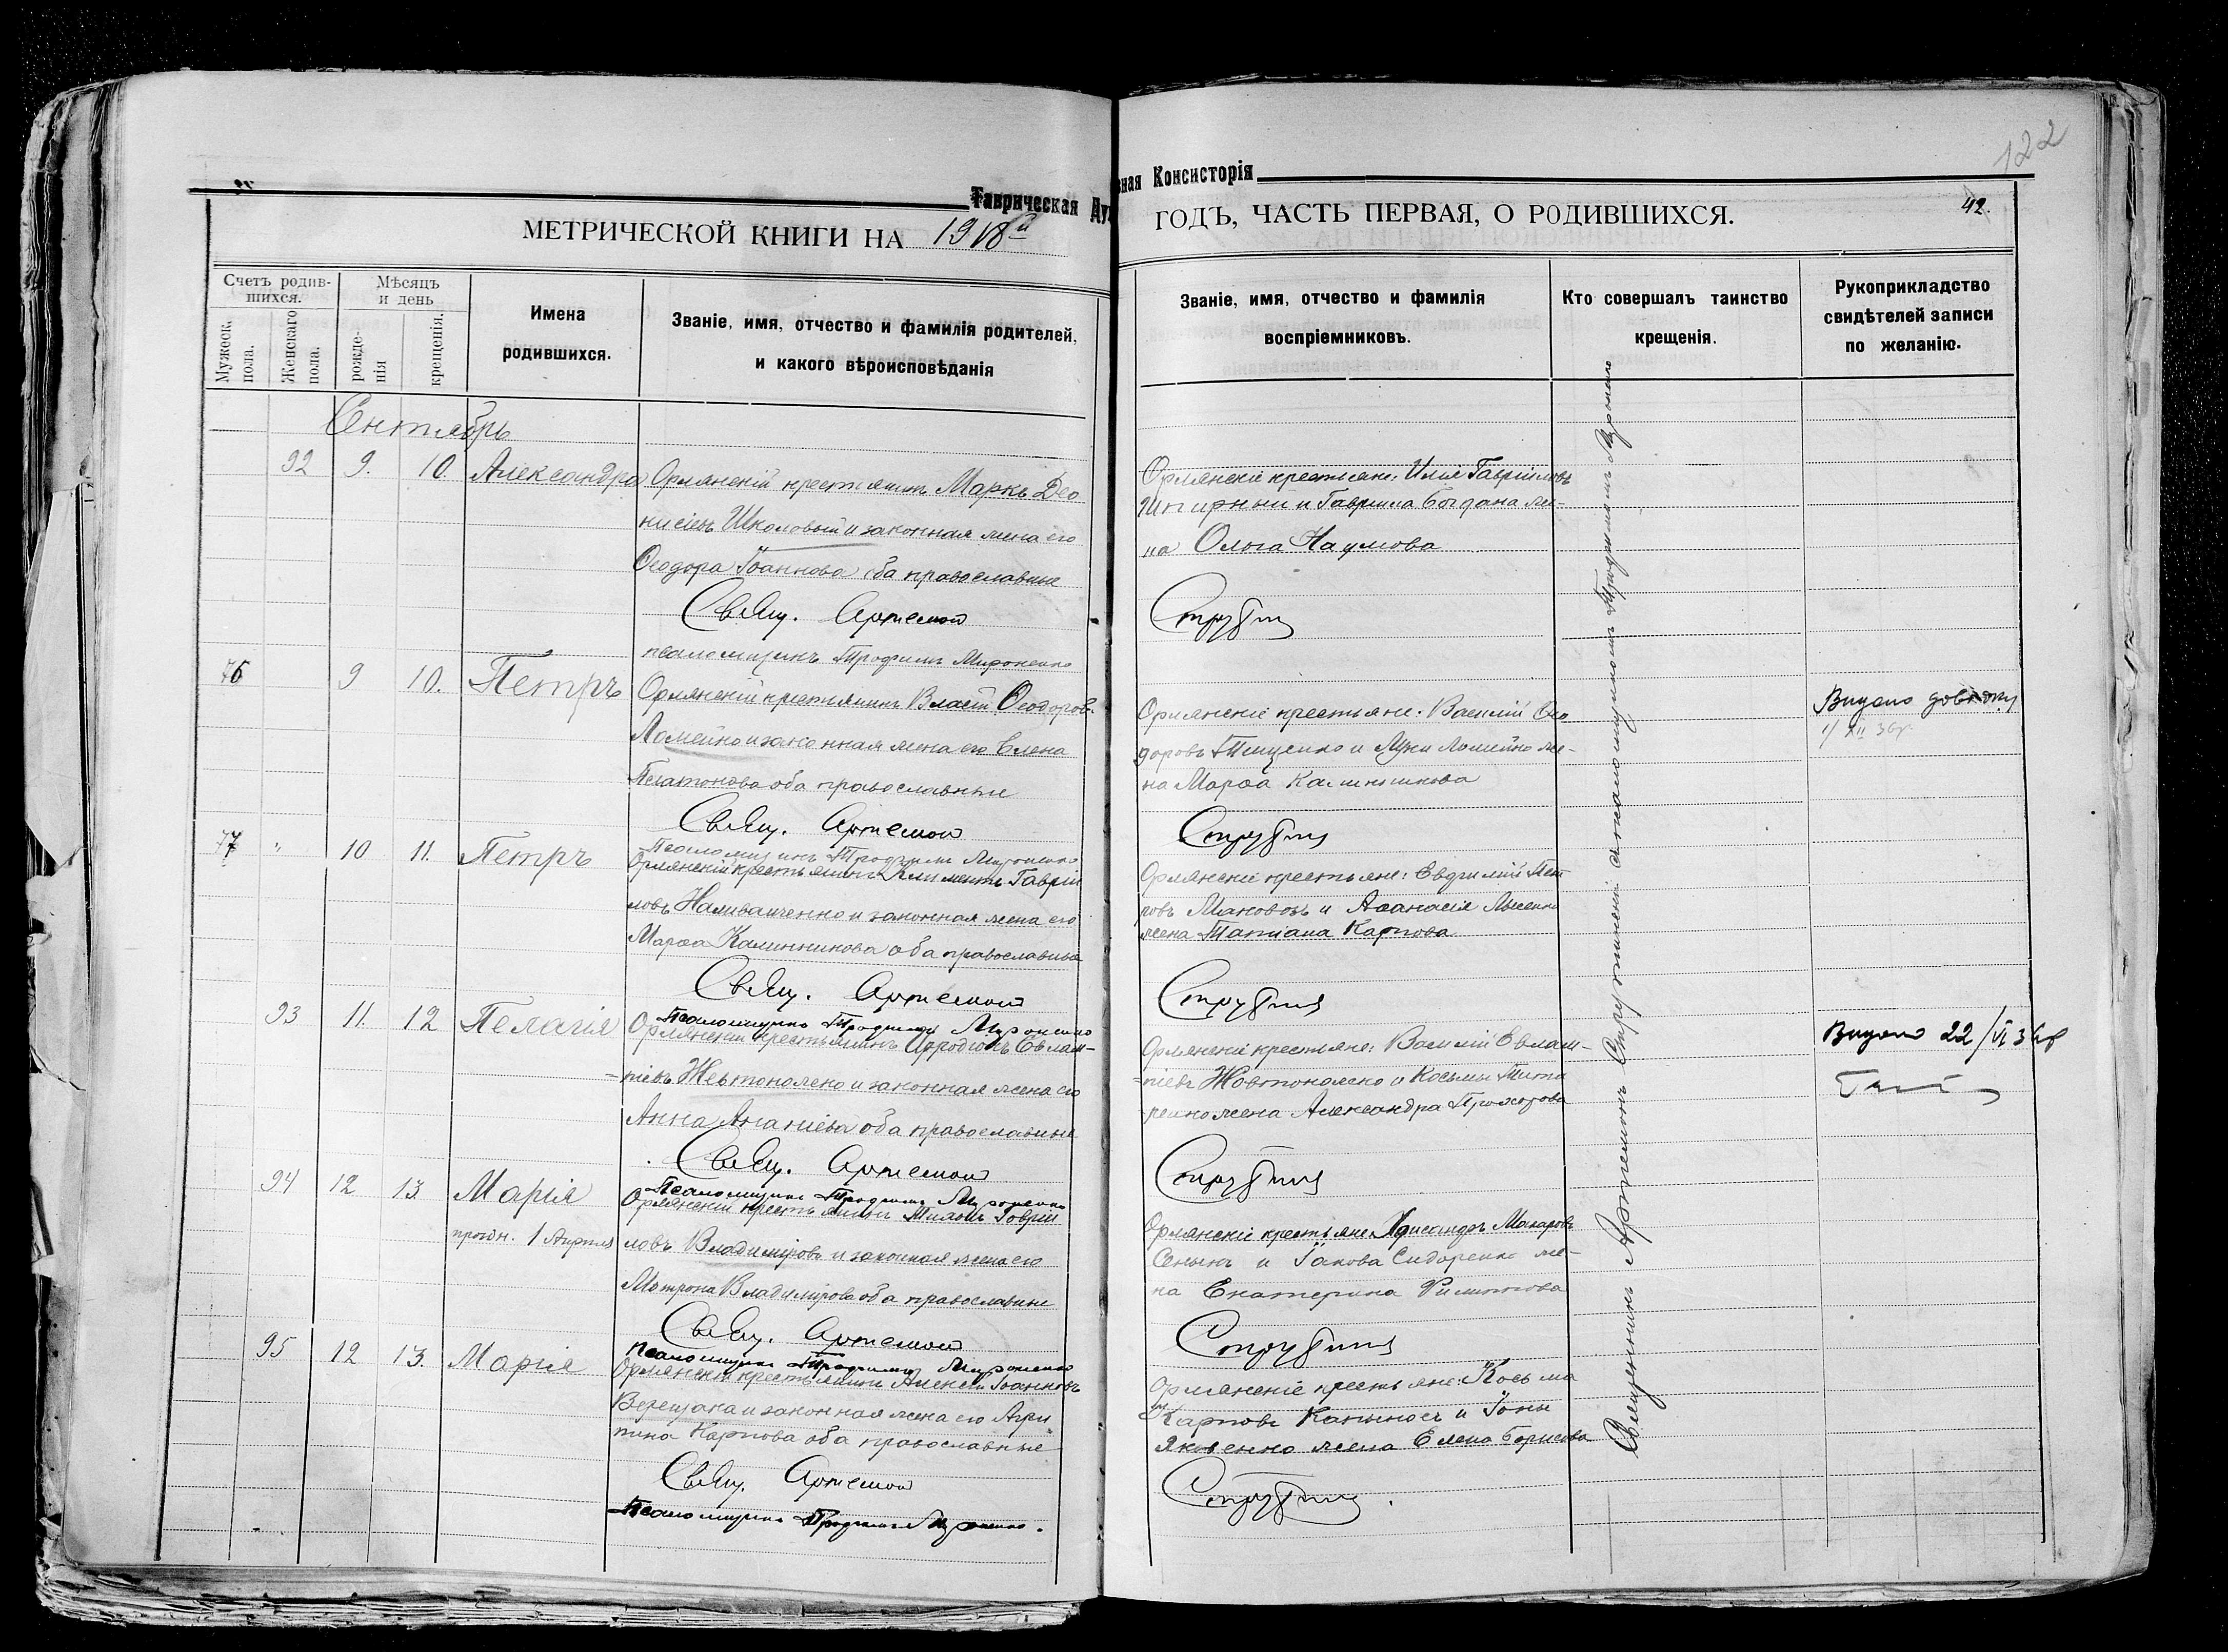 122
42.
Таврическая Ду
вная Консисторія
МЕТРИЧЕСКОЙ КНИГИ НА 1918й
ГОДЪ, ЧАСТЬ ПЕРВАЯ, О РОДИВШИХСЯ.
Счетъ родив-
шихся.
Мужеск. пола.
Женскаго пола.
Мѣсяцъ
и день
рожде-
нія
крещенія.
Имена
родившихся.
Званіе, имя, отчество и фамилія родителей,
и какого вѣроисповѣданія
Званіе, имя, отчество и фамилія
воспріемниковъ.
Кто совершалъ таинство
крещенія.
Рукоприкладство
свидѣтелей записи
по желанію.
Сентябрь
92 9. 10. Александра
Орлянскій крестьянинъ Маркъ Део
нисіевъ Школовый и законная жена его
Ѳеодора Іоаннова оба православные
Свящ. Артемой
псаломщикъ Трофимъ Мироненко
Орлянскіе крестьяне: Илія Гавріиловъ
и Гавріила Богдана же-
на Ольга Наумова
76 9 10. Петръ
Орлянскій крестьянинъ Власій Ѳеодоров.
Ломейко и законная жена его Елена
Платонова оба православные
Свящ. Артемой
Псаломщикъ Трофимъ Мироненко
Орлянскіе крестьяне: Василій Ѳео
доровъ Тищенко и Луки Ломейко же-
на Марѳа Калинникова
Видано довідку
1/XII 36р.
77 " 10 11. Петръ
Орлянскій крестьянинъ Климентъ Гавріи
ловъ Наливайченко и законная жена его
Марѳа Калинникова оба православные
Свящ. Артемой
Псаломщикъ Трофимъ Мироненко
Орлянскіе крестьяне: Евфимій Пет
ровъ Маковозъ и Аѳанасія Лысенко
жена Татіана Карпова
93 11. 12 Пелагія
Орлянскій крестьянинъ Иродіонъ Евлам-
піевъ Жевтоножко и законная жена его
Анна Ананіева оба православные
Свящ. Артемой
Псаломщикъ Трофимъ Мироненко
Орлянскіе крестьяне: Василій Евлам-
піевъ Жовтоножко и Косьмы Тита
ренко жена Александра Прохорова
Видано 22/VI 36р
94 12 13. Марія
1 Апрѣля
Орлянскій крестьянинъ Тихонъ Гавріи
ловъ Владиміровъ и законная жена его
Матрона Владимірова оба православные
Свящ. Артемой
Псаломщикъ Трофимъ Мироненко
Орлянскіе крестьяне Александръ Макаровъ
и Іакова Сидоренко же-
на Екатерина Филиппова
95 12 13. Марія
Орлянскій крестьянинъ Алексій Іоанновъ
Верещака и законная жена его Агри
пина Карпова оба православные
Свящ. Артемой
Псаломщикъ Трофимъ Мироненко.
Орлянскіе крестьяне: Косьма
Карповъ и Іоны
Яковенко жена Елена Борисова
Священникъ Артемонъ съ псаломщикомъ Трофимомъ Мироненко